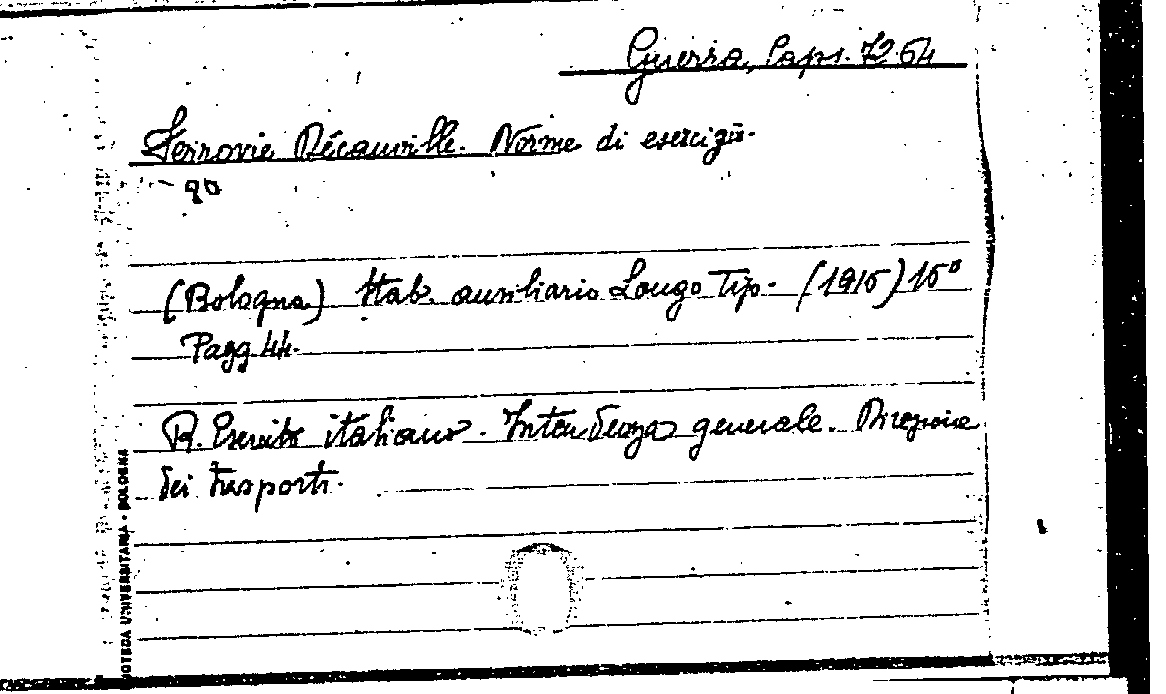 Guerra, Caps. 72 64
Ferrovie Décauville. Norme di esercizio.
90
(Bologna) Stab. ausiliario Longo Tip. (1915) 16°
Pagg. 44.
R. Esercito italiano. Intendenza generale. Direzione
dei trasporti.
BIBLIOTECA UNIVERSITARIA - BOLOGNA